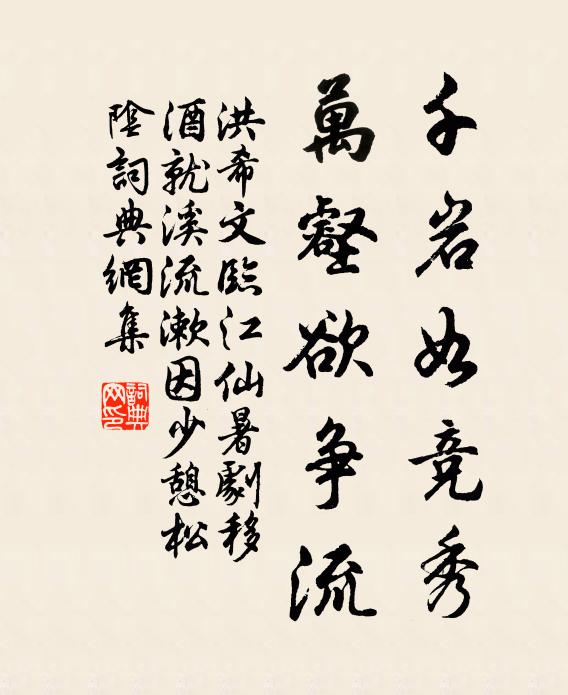 千岩如竞秀
萬壑欲争流
洪希文臨江仙暑劇移
酒就溪流漱因少憩松
陰詞典網集
詞典網印